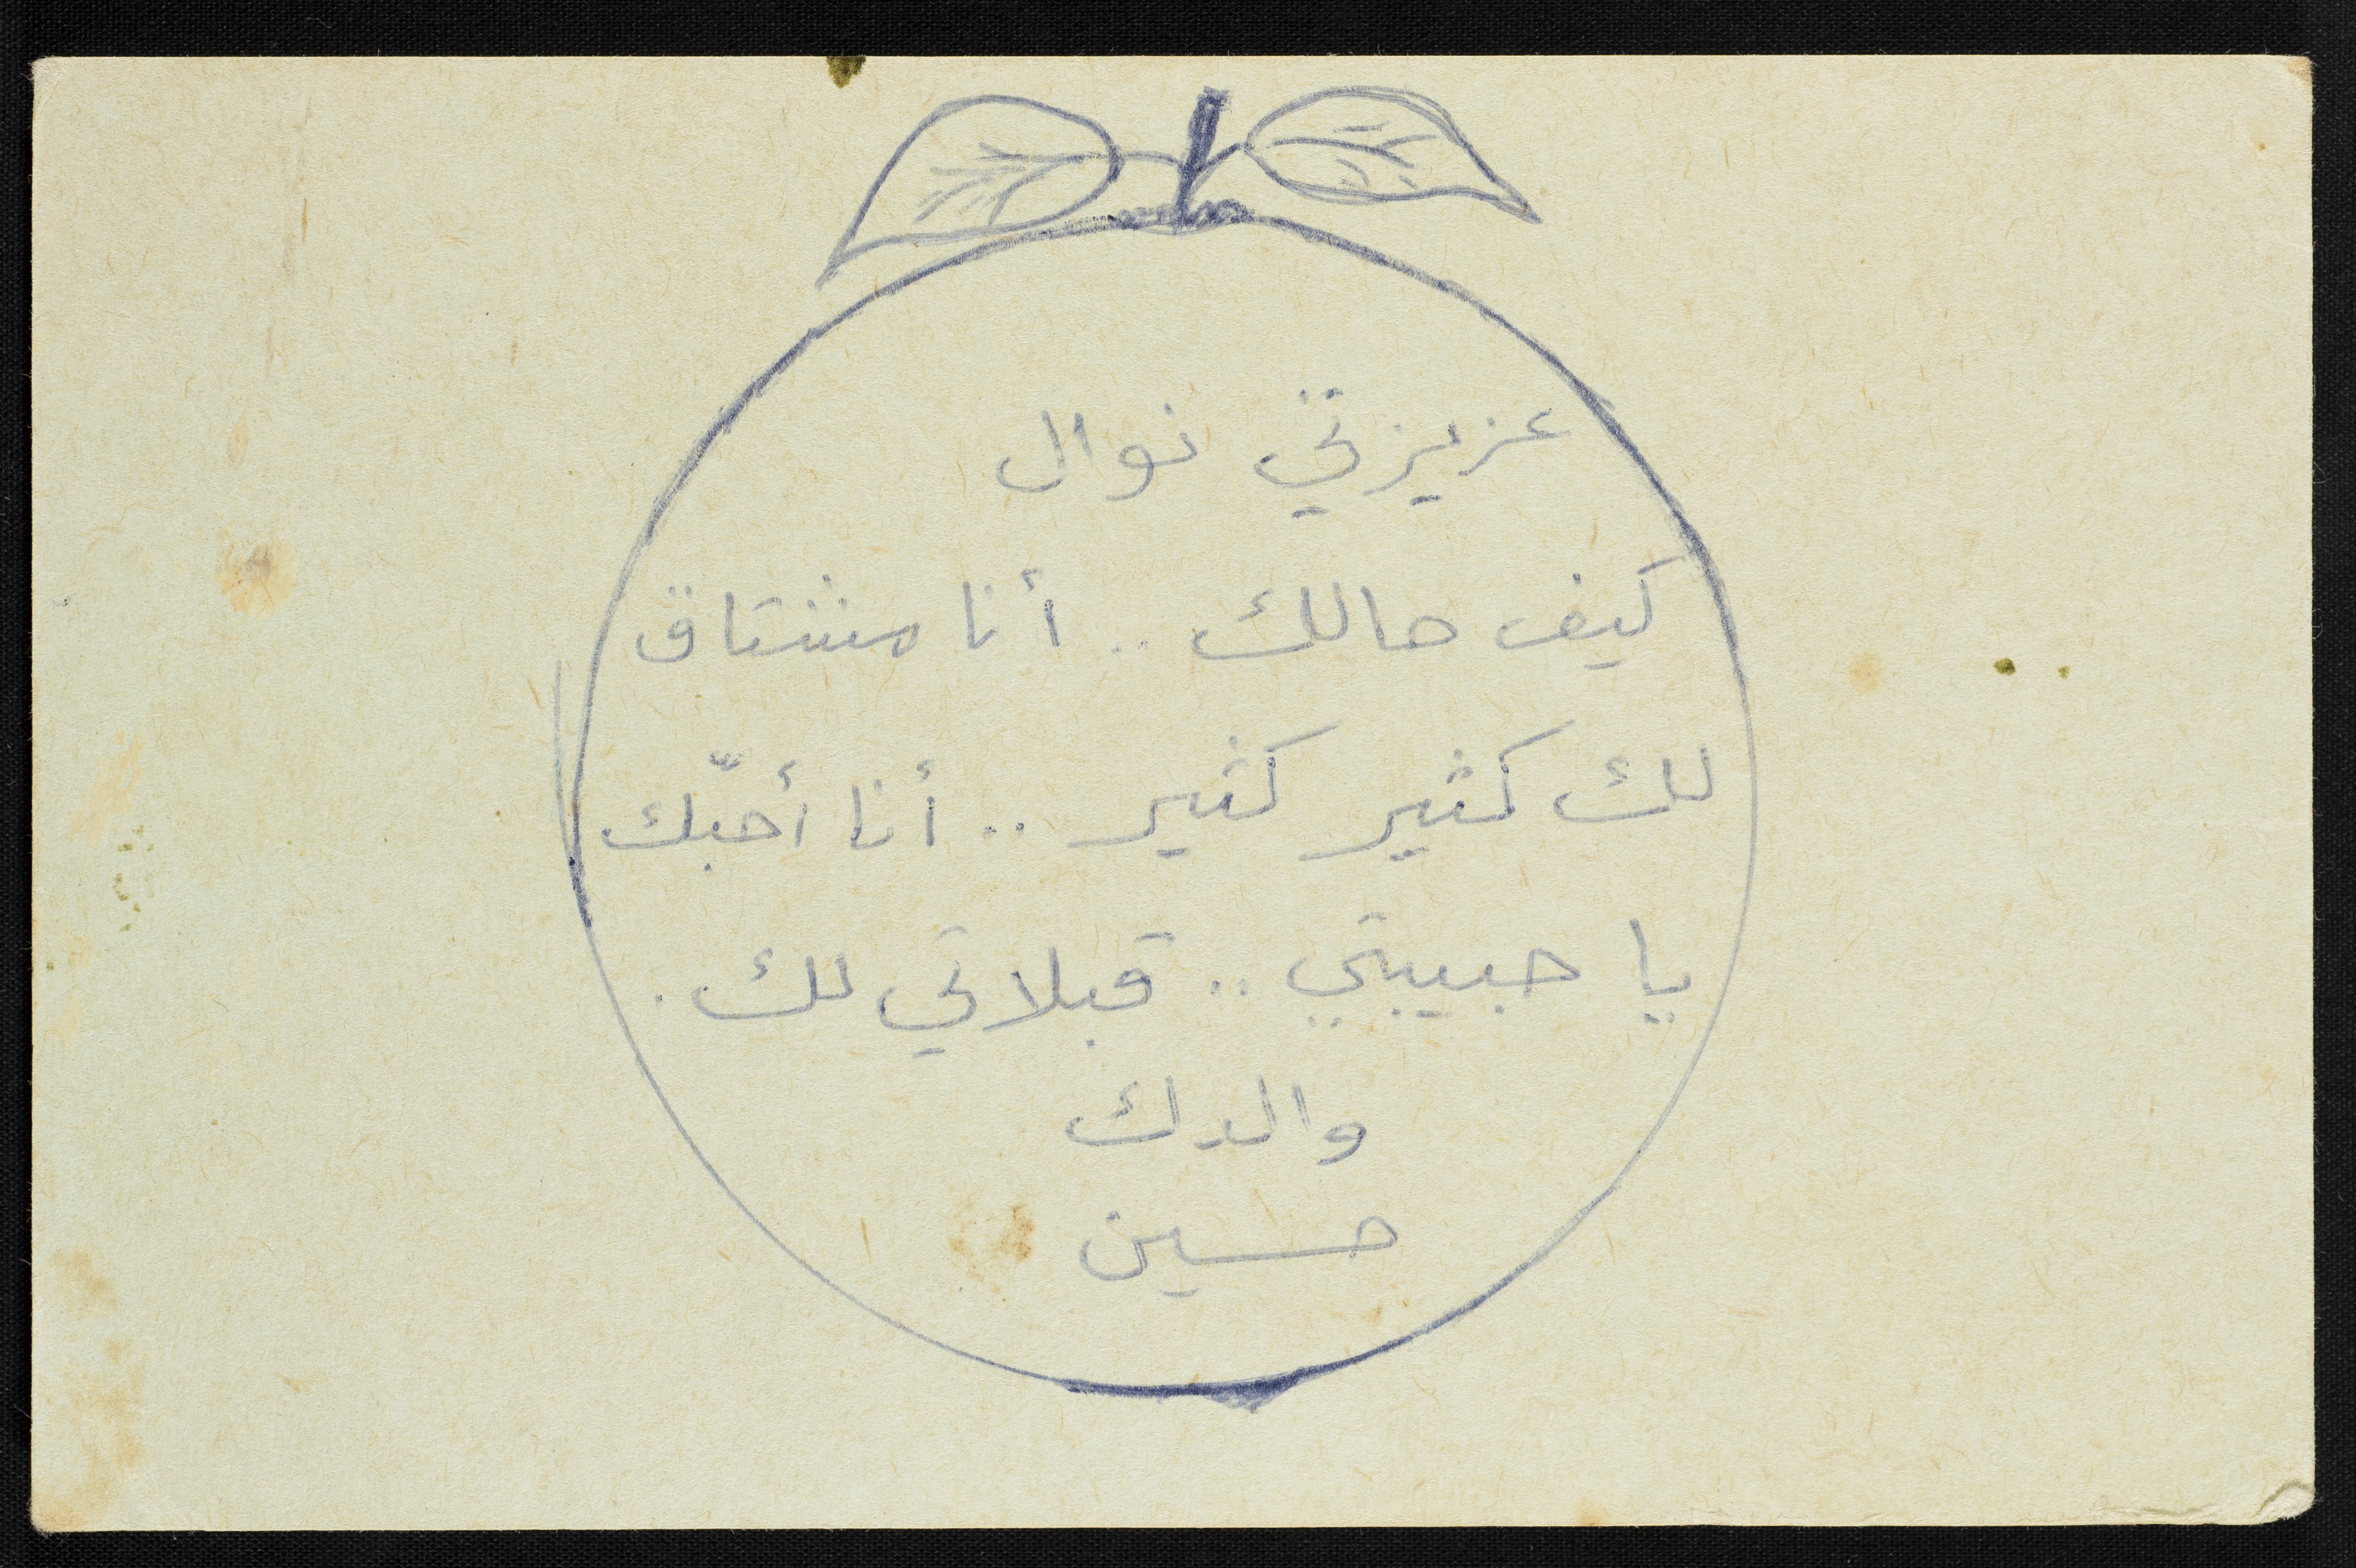 عزيزتي نوال
كيف حالك .. أنا مشتاق
لك كثير كثير .. أنا أحبّك
يا حبيبتي .. قبلاتي لك .
والدك
حسين